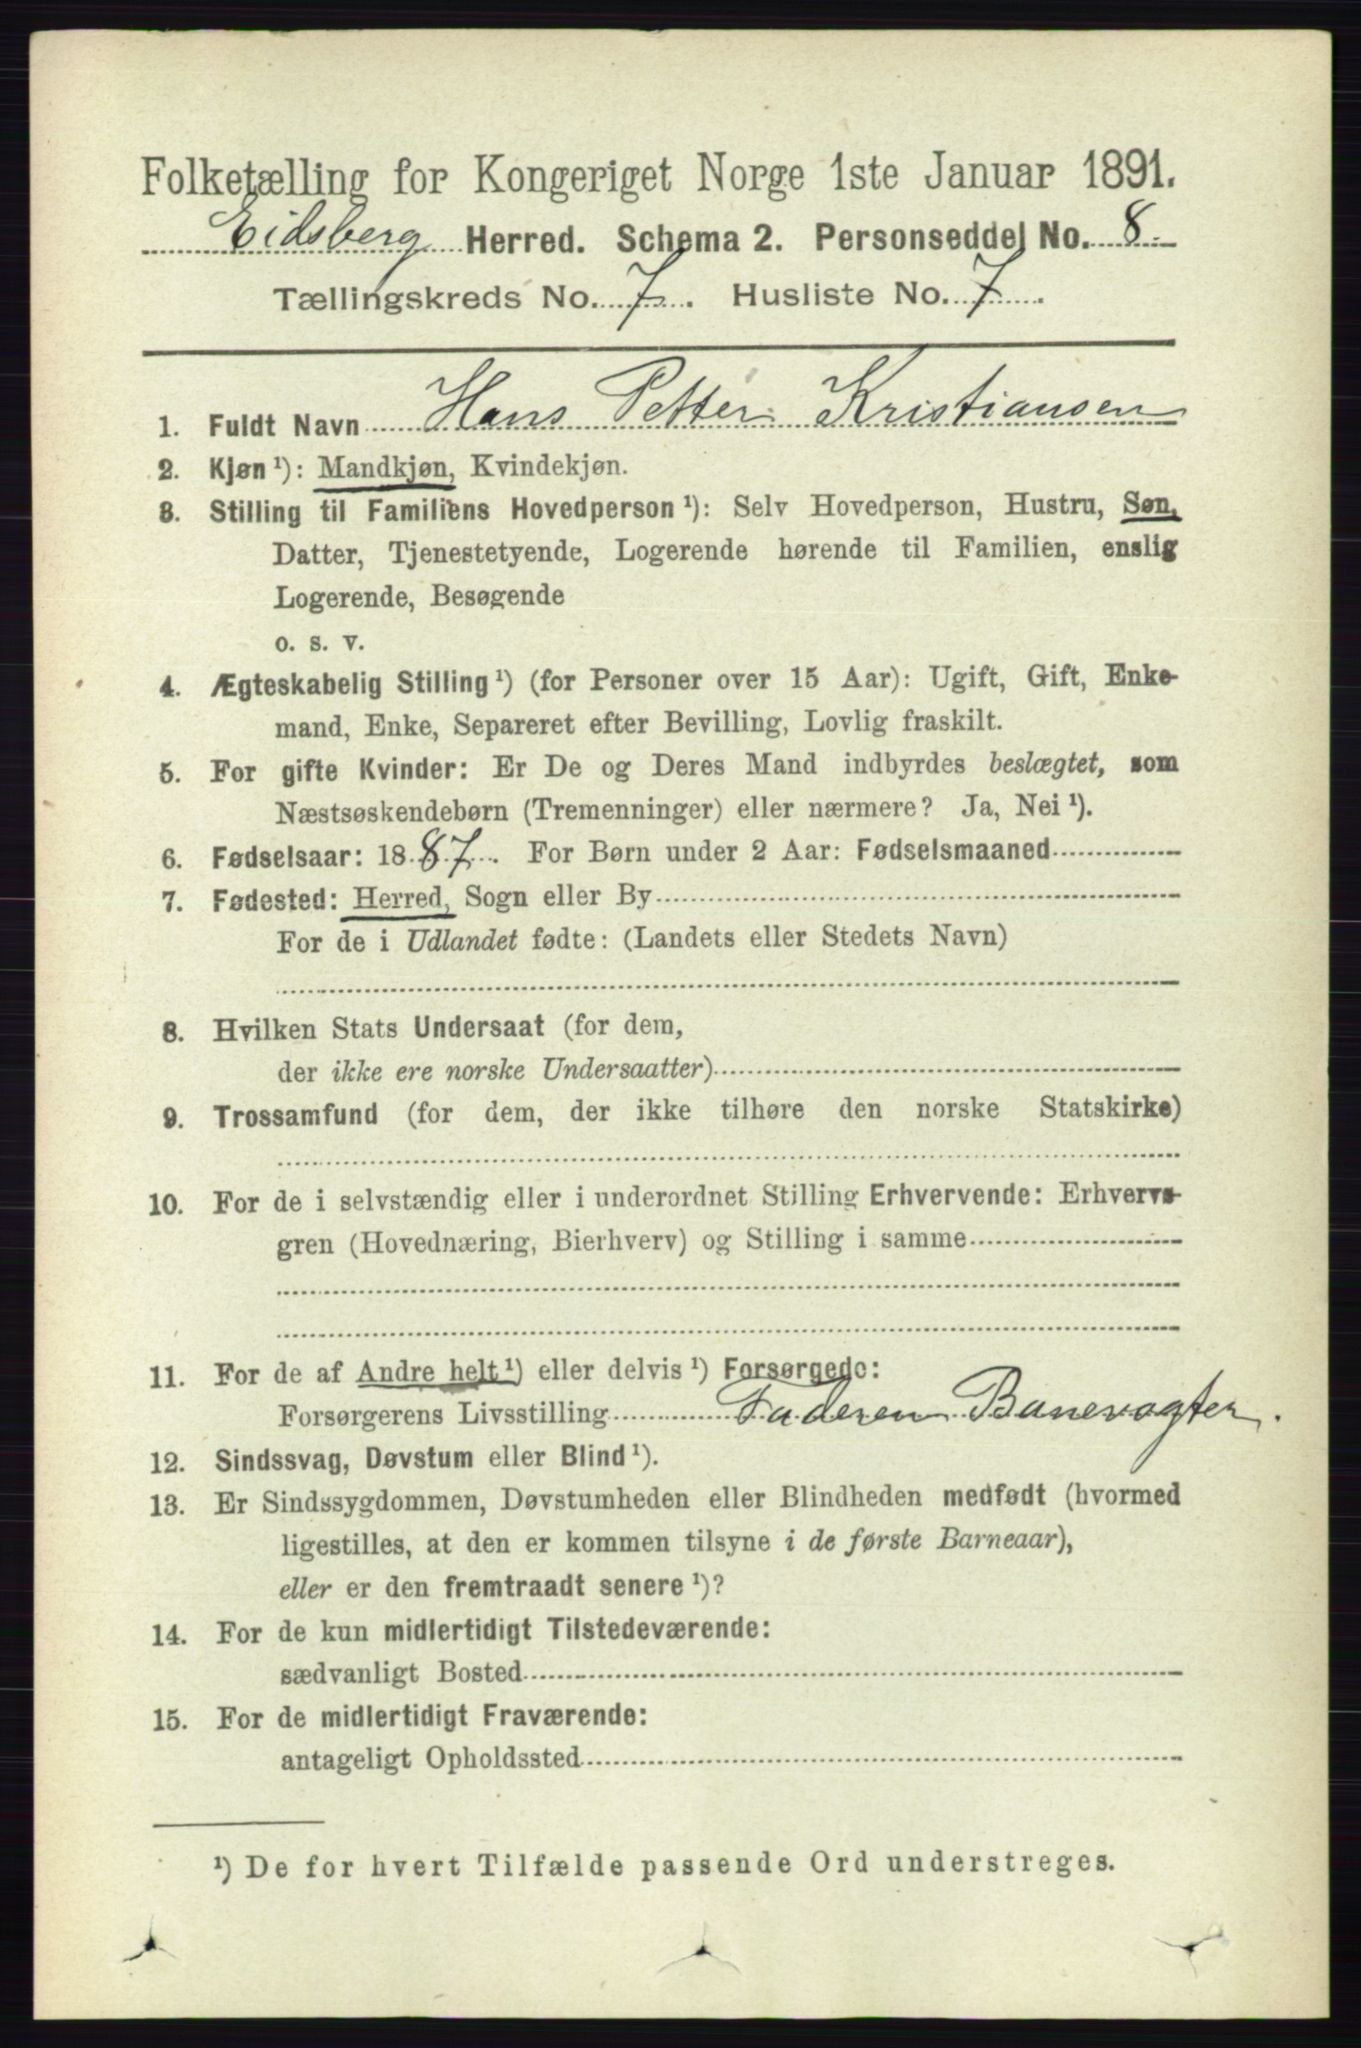 Folketælling for Kongeriget Norge 1ste Januar 1891.
Eidsberg Herred. Schema 2. Personseddel No. 8.
Tællingskreds No. 7. Husliste No. 7.
1. Fuldt Navn Hans Petter Kristiansen
2. Kjøn ¹): Mandkjøn, Kvindekjøn.
3. Stilling til Familiens Hovedperson ¹): Selv Hovedperson, Hustru, Søn,
Datter, Tjenestetyende, Logerende hørende til Familien, enslig
Logerende, Besøgende
o. s. v.
4. Ægteskabelig Stilling ¹) (for Personer over 15 Aar): Ugift, Gift, Enke-
mand, Enke, Separeret efter Bevilling, Lovlig fraskilt.
5. For gifte Kvinder: Er De og Deres Mand indbyrdes beslægtet, som
Næstsøskendebørn (Tremenninger) eller nærmere? Ja, Nei ¹).
6. Fødselsaar: 1887. For Børn under 2 Aar: Fødselsmaaned
7. Fødested: Herred, Sogn eller By
For de i Udlandet fødte: (Landets eller Stedets Navn)
8. Hvilken Stats Undersaat (for dem,
der ikke ere norske Undersaatter)
9. Trossamfund (for dem, der ikke tilhøre den norske Statskirke)
10. For de i selvstændig eller i underordnet Stilling Erhvervende: Erhvervs-
gren (Hovednæring, Bierhverv) og Stilling i samme
11. For de af Andre helt ¹) eller delvis ¹) Forsørgede:
Forsørgerens Livsstilling Faderen Banevogter.
12. Sindssvag, Døvstum eller Blind ¹).
13. Er Sindssygdommen, Døvstumheden eller Blindheden medfødt (hvormed
ligestilles, at den er kommen tilsyne i de første Barneaar),
eller er den fremtraadt senere ¹)?
14. For de kun midlertidigt Tilstedeværende:
sædvanligt Bosted
15. For de midlertidigt Fraværende:
antageligt Opholdssted
¹) De for hvert Tilfælde passende Ord understreges.